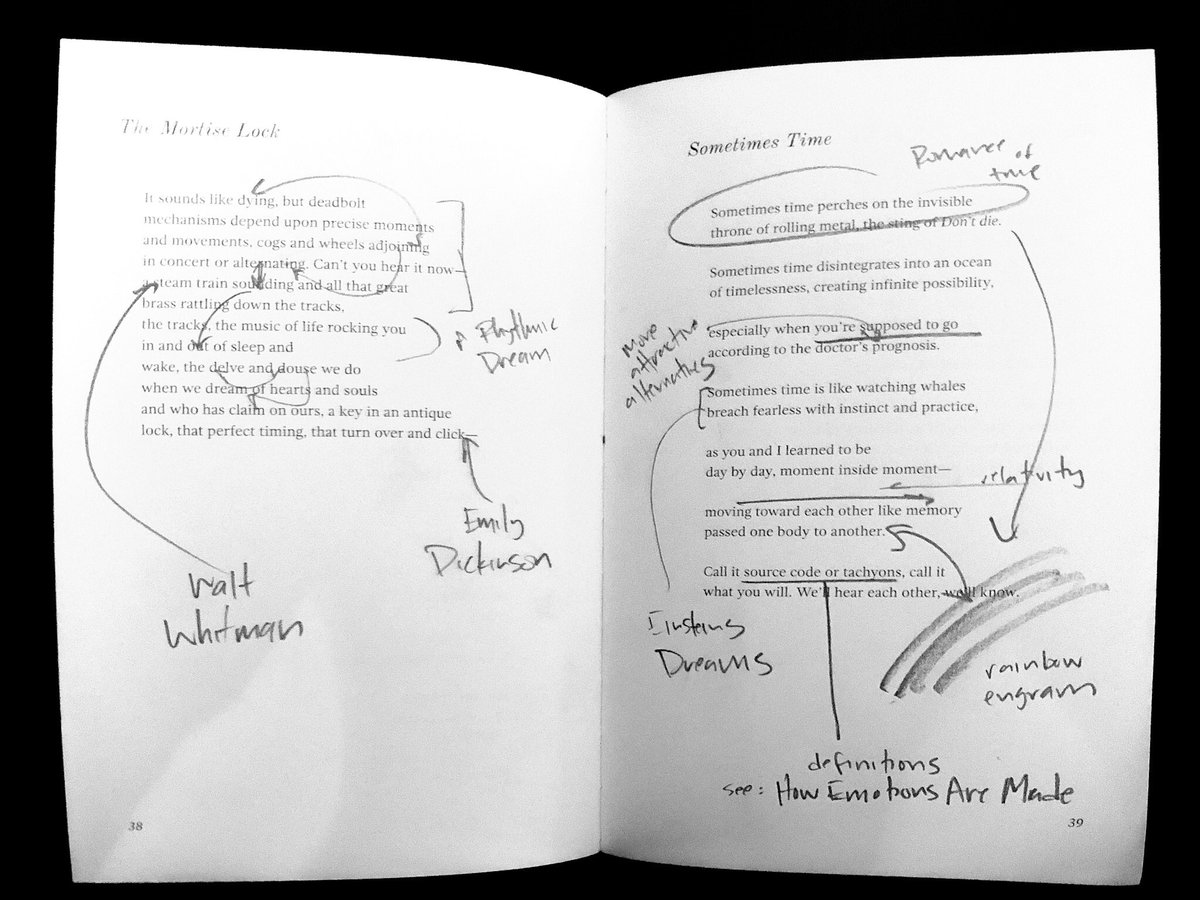 The Mortise Lock
It sounds like dying, but deadbolt
mechanisms depend upon precise moments
and movements, cogs and wheels adjoining
in concert or alternating. Can't you hear it now—
a steam train sounding and all that great
brass rattling down the tracks,
the tracks, the music of life rocking you
in and out of sleep and
wake, the delve and douse we do
when we dream of hearts and souls
and who has claim on ours, a key in an antique
lock, that perfect timing, that turn over and click—
Rhythmic
Dream
Emily
Dickinson
Walt
Whitman
38
Sometimes Time
Romance of
time
Sometimes time perches on the invisible
throne of rolling metal, the sting of Don't die.
Sometimes time disintegrates into an ocean
of timelessness, creating infinite possibility,
especially when you're supposed to go
according to the doctor's prognosis.
more
attractive
alternatives
Sometimes time is like watching whales
breach fearless with instinct and practice,
as you and I learned to be
day by day, moment inside moment—
relativity
moving toward each other like memory
passed one body to another.
Call it source code or tachyons, call it
what you will. We'll hear each other, we'll know.
Einsteins
Dreams
rainbow
engram
definitions
see: How Emotions Are Made
39